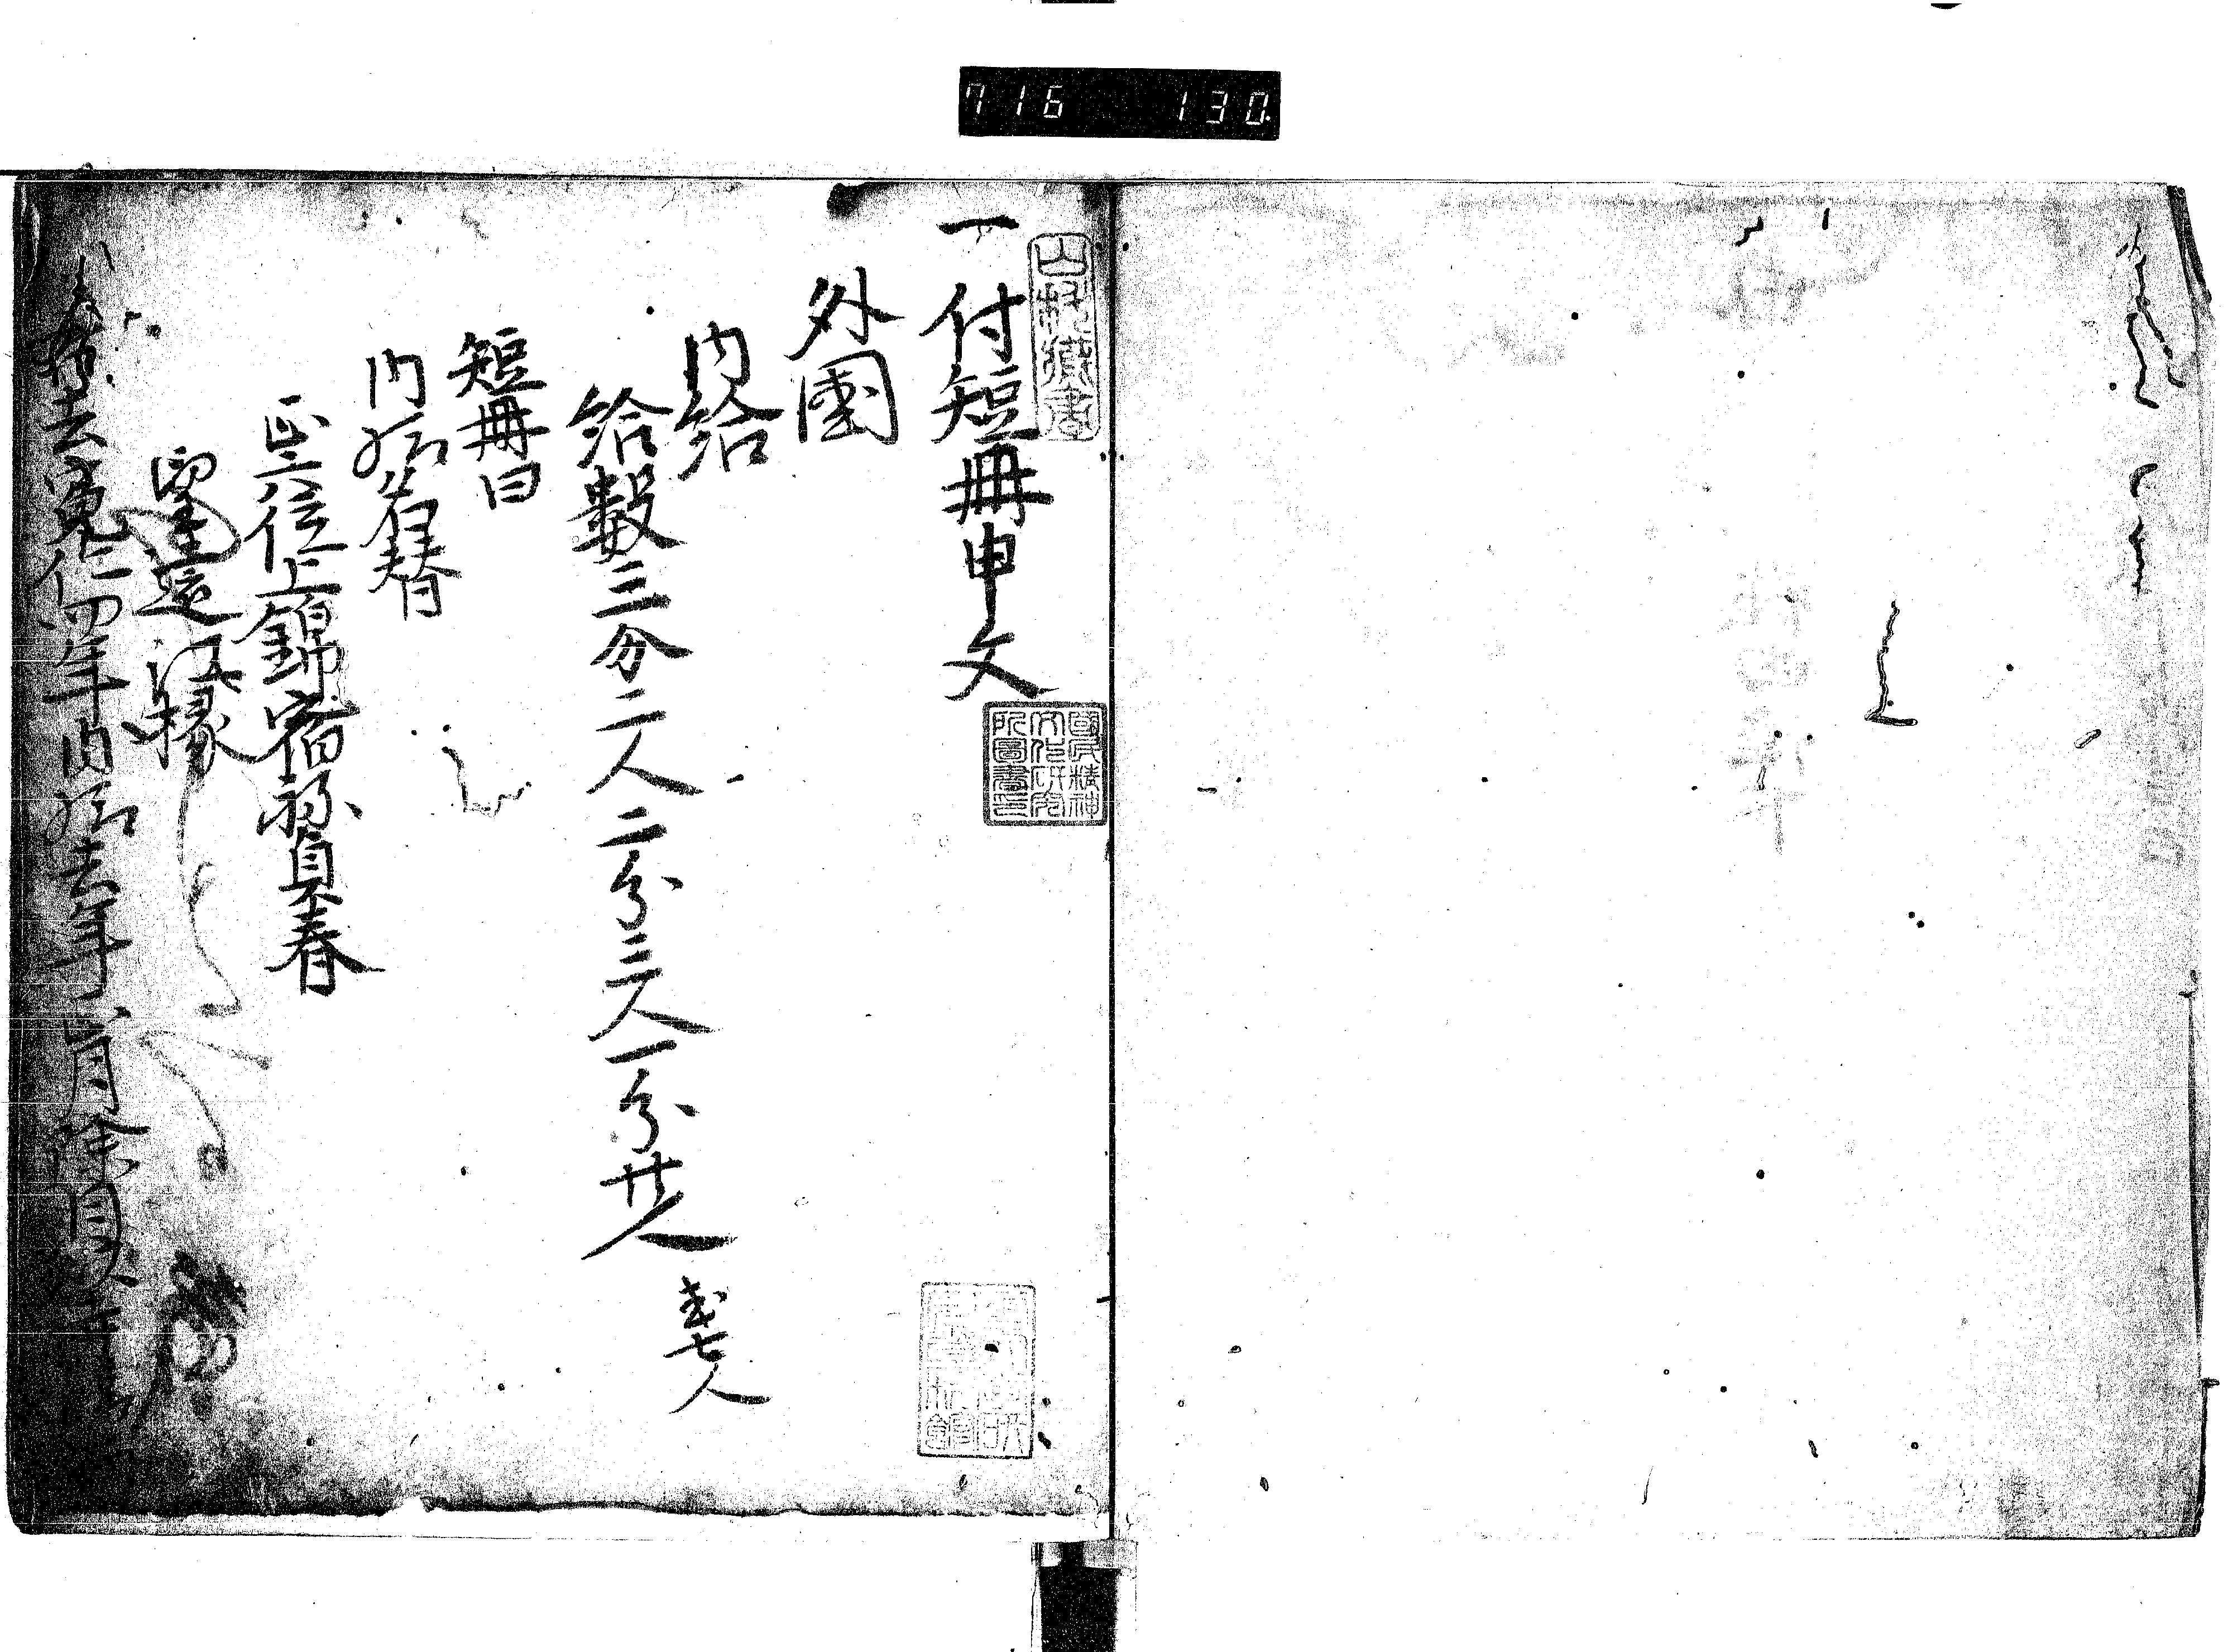 716 130
一付短冊申文
外國
内給
給數三分二人二分三人一分廿人 或七人
短冊曰
内給名替
正六位上錦宿祢貞春
望遠江掾
去寛仁四年内給去年 月除目
國民精神文化研究所圖書印